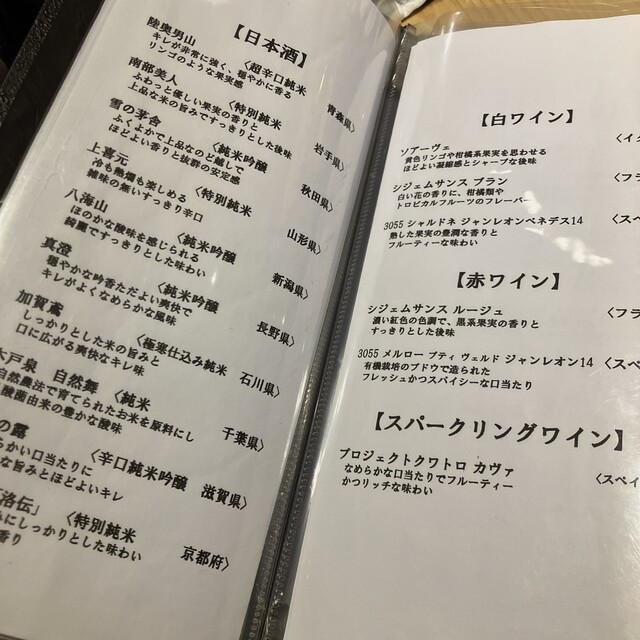 【日本酒】
陸奥男山 〈超辛口純米 青森県〉
キレが非常に強く、穏やかに香る
リンゴのような果実感
南部美人 〈特別純米 岩手県〉
ふわっと優しい果実の香りと
上品な米の旨みですっきりとした後味
雪の茅舎 〈純米吟醸 秋田県〉
ふくよかで上品なのど越しで
ほどよい香りと抜群の安定感
上喜元 〈特別純米 山形県〉
冷も熱燗も楽しめる
雑味の無いすっきり辛口
八海山 〈純米吟醸 新潟県〉
ほのかな酸味を感じられる
綺麗ですっきりとした味わい
真澄 〈純米吟醸 長野県〉
穏やかな吟香ただよい爽快で
キレがよくなめらかな風味
加賀鳶 〈極寒仕込み純米 石川県〉
しっかりとした米の旨みと
口に広がる爽快なキレ味
木戸泉 自然舞 〈純米 千葉県〉
自然農法で育てられたお米を原料にし
酸菌由来の豊かな酸味
の露 〈辛口純米吟醸 滋賀県〉
らかい口当たりに
な旨みとほどよいキレ
洛伝」 〈特別純米 京都府〉
にしっかりとした味わい
香り
【白ワイン】
ソアーヴェ 〈イタ
黄色リンゴや柑橘系果実を思わせる
ほどよい凝縮感とシャープな後味
シジェムサンス ブラン 〈フラ
白い花の香りに、柑橘類や
トロピカルフルーツのフレーバー
3055 シャルドネ ジャンレオンペネデス14 〈スペ
熟した果実の豊潤な香りと
フルーティーな味わい
【赤ワイン】
シジェムサンス ルージュ 〈フラ
濃い紅色の色調で、黒系果実の香りと
すっきりとした後味
3055 メルロー プティ ヴェルド ジャンレオン14 〈スペ
有機栽培のブドウで造られた
フレッシュかつスパイシーな口当たり
【スパークリングワイン】
プロジェクトクワトロ カヴァ 〈スペイ
なめらかな口当たりでフルーティー
かつリッチな味わい